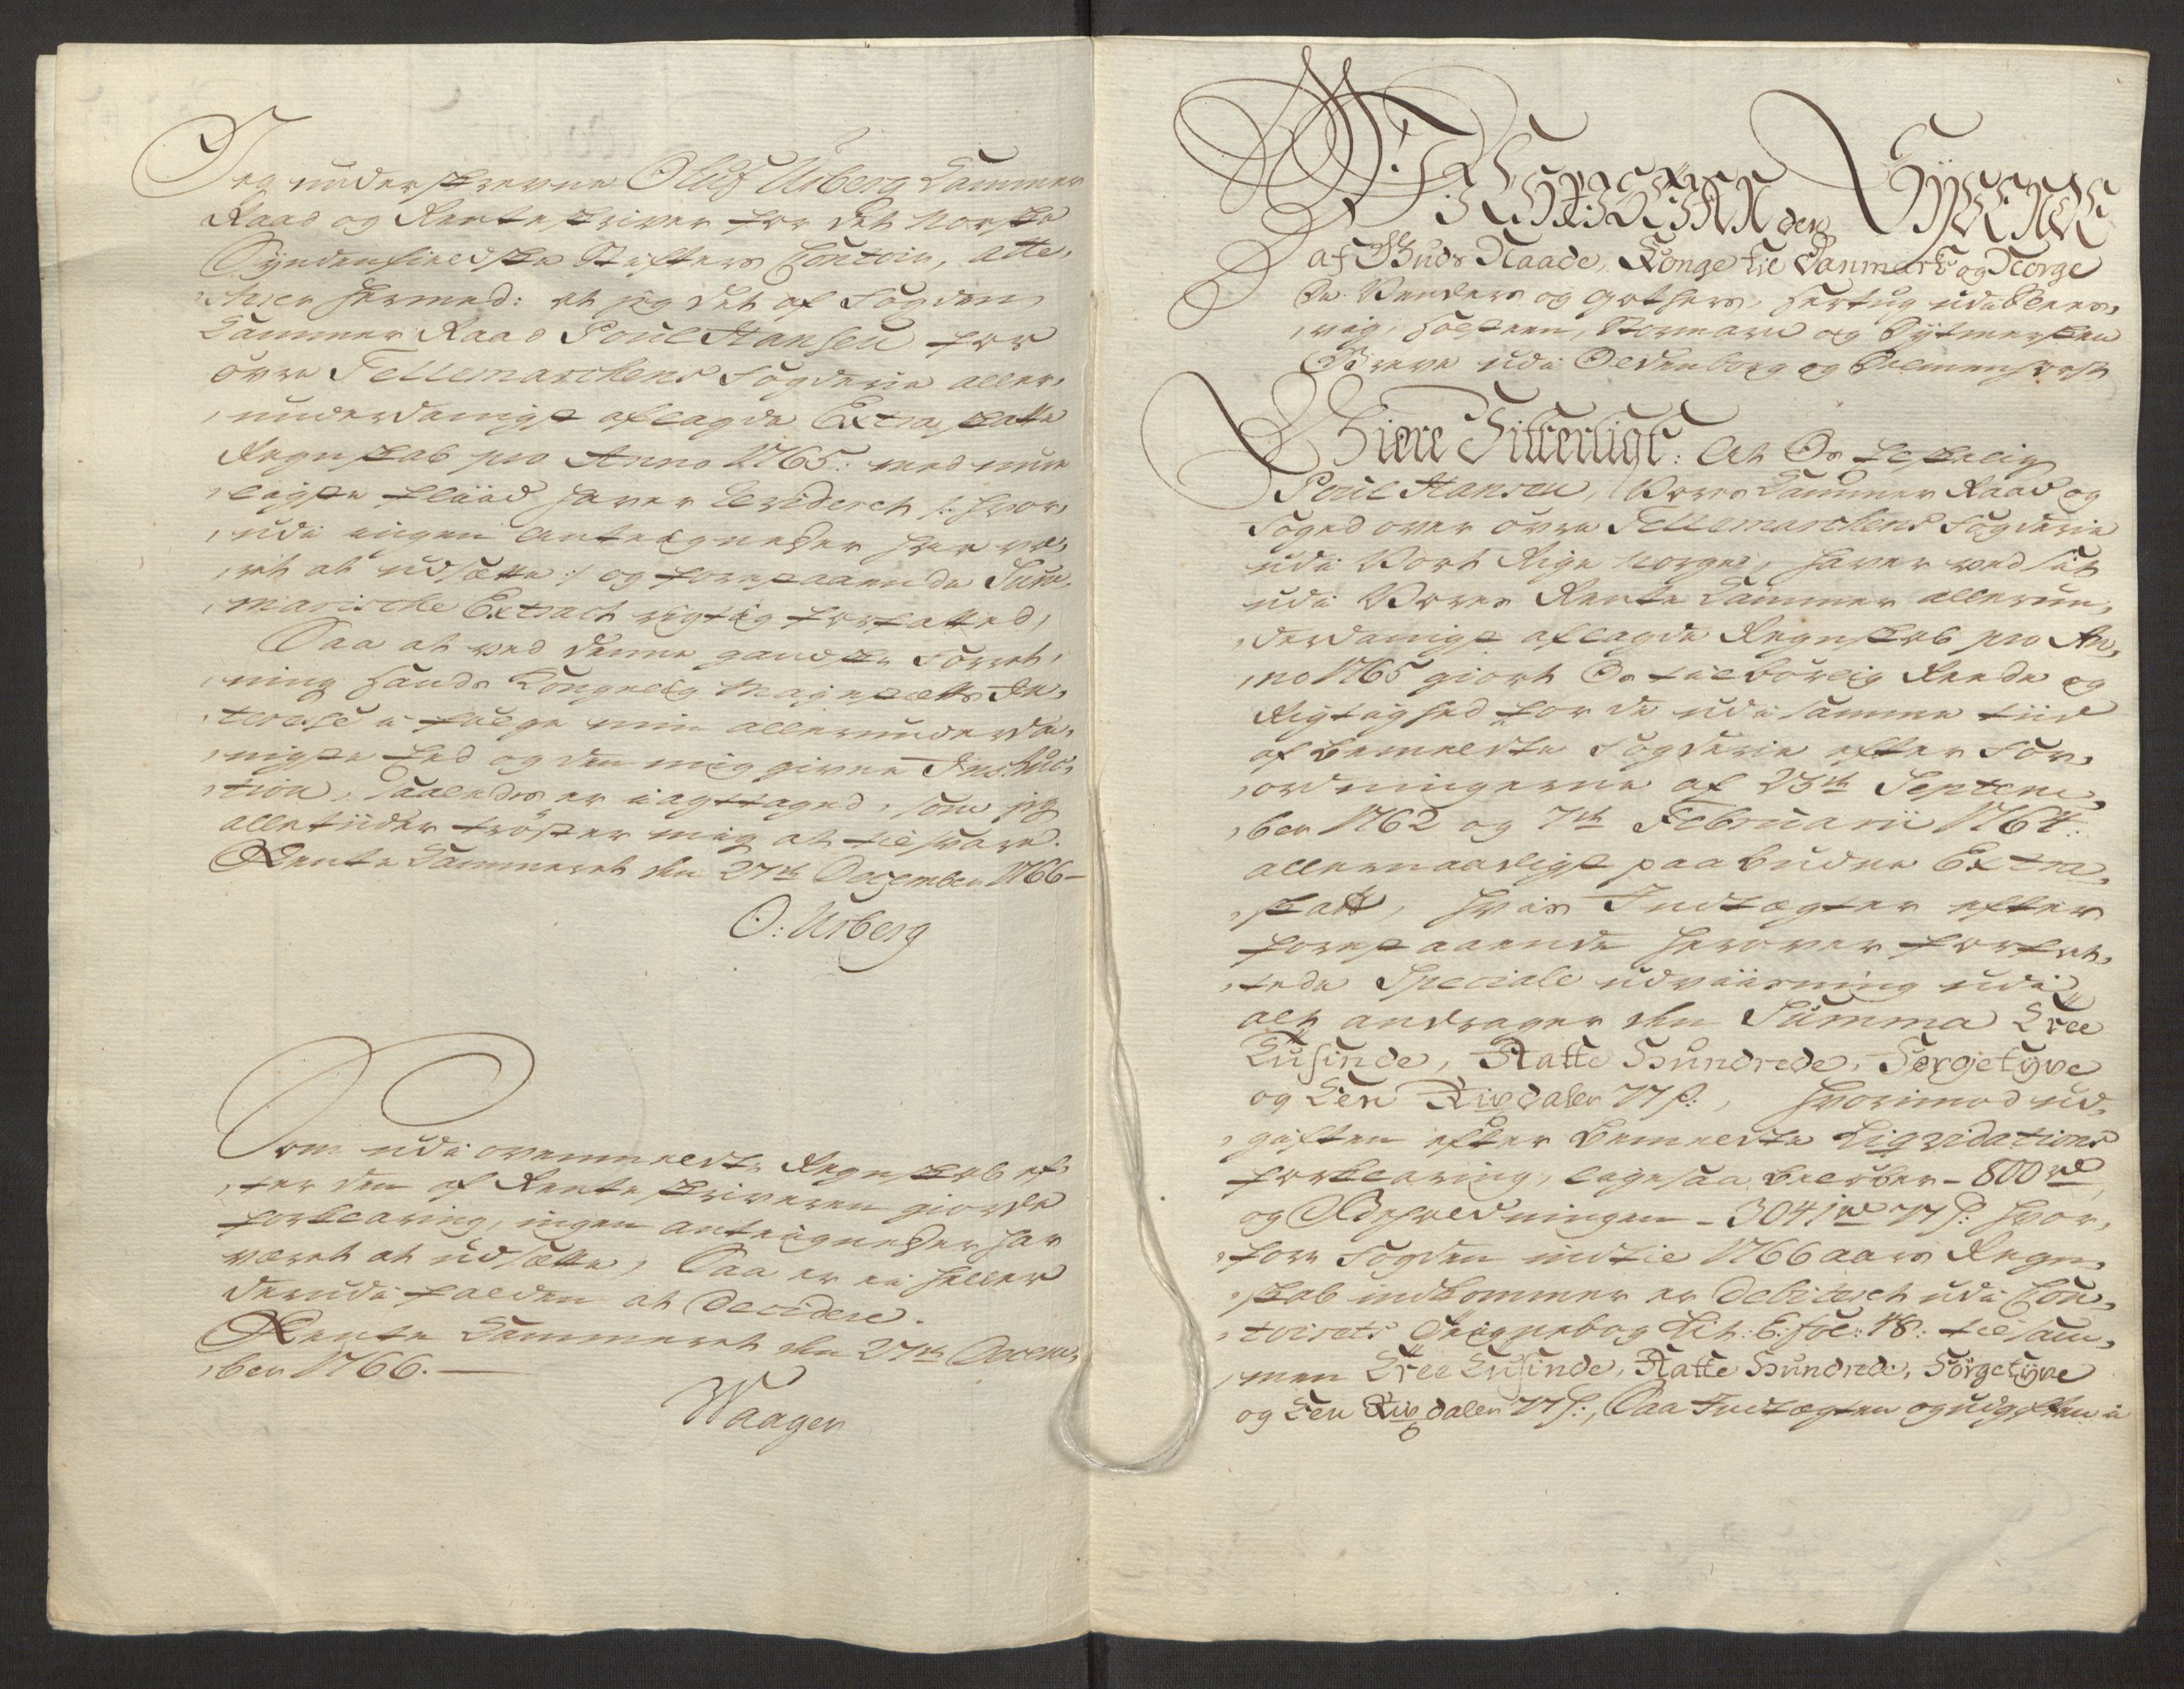 Jeg underskrevne Oluf Urberg Cammer
Raad og Renteskriver for det Norske
Syndenfieldske Stifters Contoir, atte,
,sterer hermed: at jeg det af Fogden
Cammer Raad Poul Hansen for
övre Tellemarchens Fogderie aller,
,underdanigst aflagde Extraskatte
Regnskab pro Anno 1765: med mue,
,ligste fliid haver revideret /: hvor,
,udi ingen Antegnelser har væ,
,ret at udsætte :/ og forestaaende Sum,
,marische Extract rigtig forfatted,
Saa at ved denne gandske Forret,
,ning Hands Kongelig Majestætts In,
,teresse i følge min allerunderda,
,nigste Eed og den mig givne Instruc,
,tion, saaledes er iagttaged, som jeg
alletiider tröster mig at tilsvare.
Rente Cammeret den 27de December 1766
O: Urberg
Som udi ovenmeldte Regnskab ef,
,ter den af Renteskriveren giorde
forklaring, ingen antegnelser har
været at udsætte, Saa er ei heller
derudi falden at decidere.
Rente Cammeret den 27de Decem,
,ber 1766.
Waager
CHRISTIAN den SYVENDE
af Guds Naade, Konge til Danmark og Norge
De Venders og Gothers, Hertug udi Sles,
,vig, Holsteen, Stormarn og Dytmersken
Greve udi Oldenborg og Delmenhorst
Giøre Vitterligt: At Os Elskelig
Poul Hansen, Vores Cammer Raad og
Foged over övre Tellemarchens Fogderie
udi Vort Rige Norge, haver ved sit
udi Vores Rente Cammer allerun,
,derdanigst aflagde Regnskab pro An,
,no 1765 giort Os tilbörlig Reede og
Rigtighed for de udi samme tiid
af bemeldte Fogderie efter For,
,ordningerne af 23de Septem,
,ber 1762 og 7de Februarii 1764:
allernaadigst paabudne Extra,
,skatt, hvis Indtægter efter
forestaaende herover forfat,
,tede Speciale udviisning udi
alt andrager den Summa Tree
Tusinde, Aatte Hundrede, Førgetyve
og Een Rixdaler 77 s:, hvorimod ud,
,giften efter bemeldte Liqvidations
forklaring, ligesaa beløber - 800 rd
og Restfordringen - 3041 rd 77 s: hvor,
,fore Fogden indtil 1766 aars Regn,
,skab indkommer er debiteret udi Con,
,toirets Lit: E: fol: 48: tilsam,
,men Tree Tusinde, Aatte Hundrede, Førgetyve
og Een Rixdaler 77 s:, Saa Indtægten og udgiften i